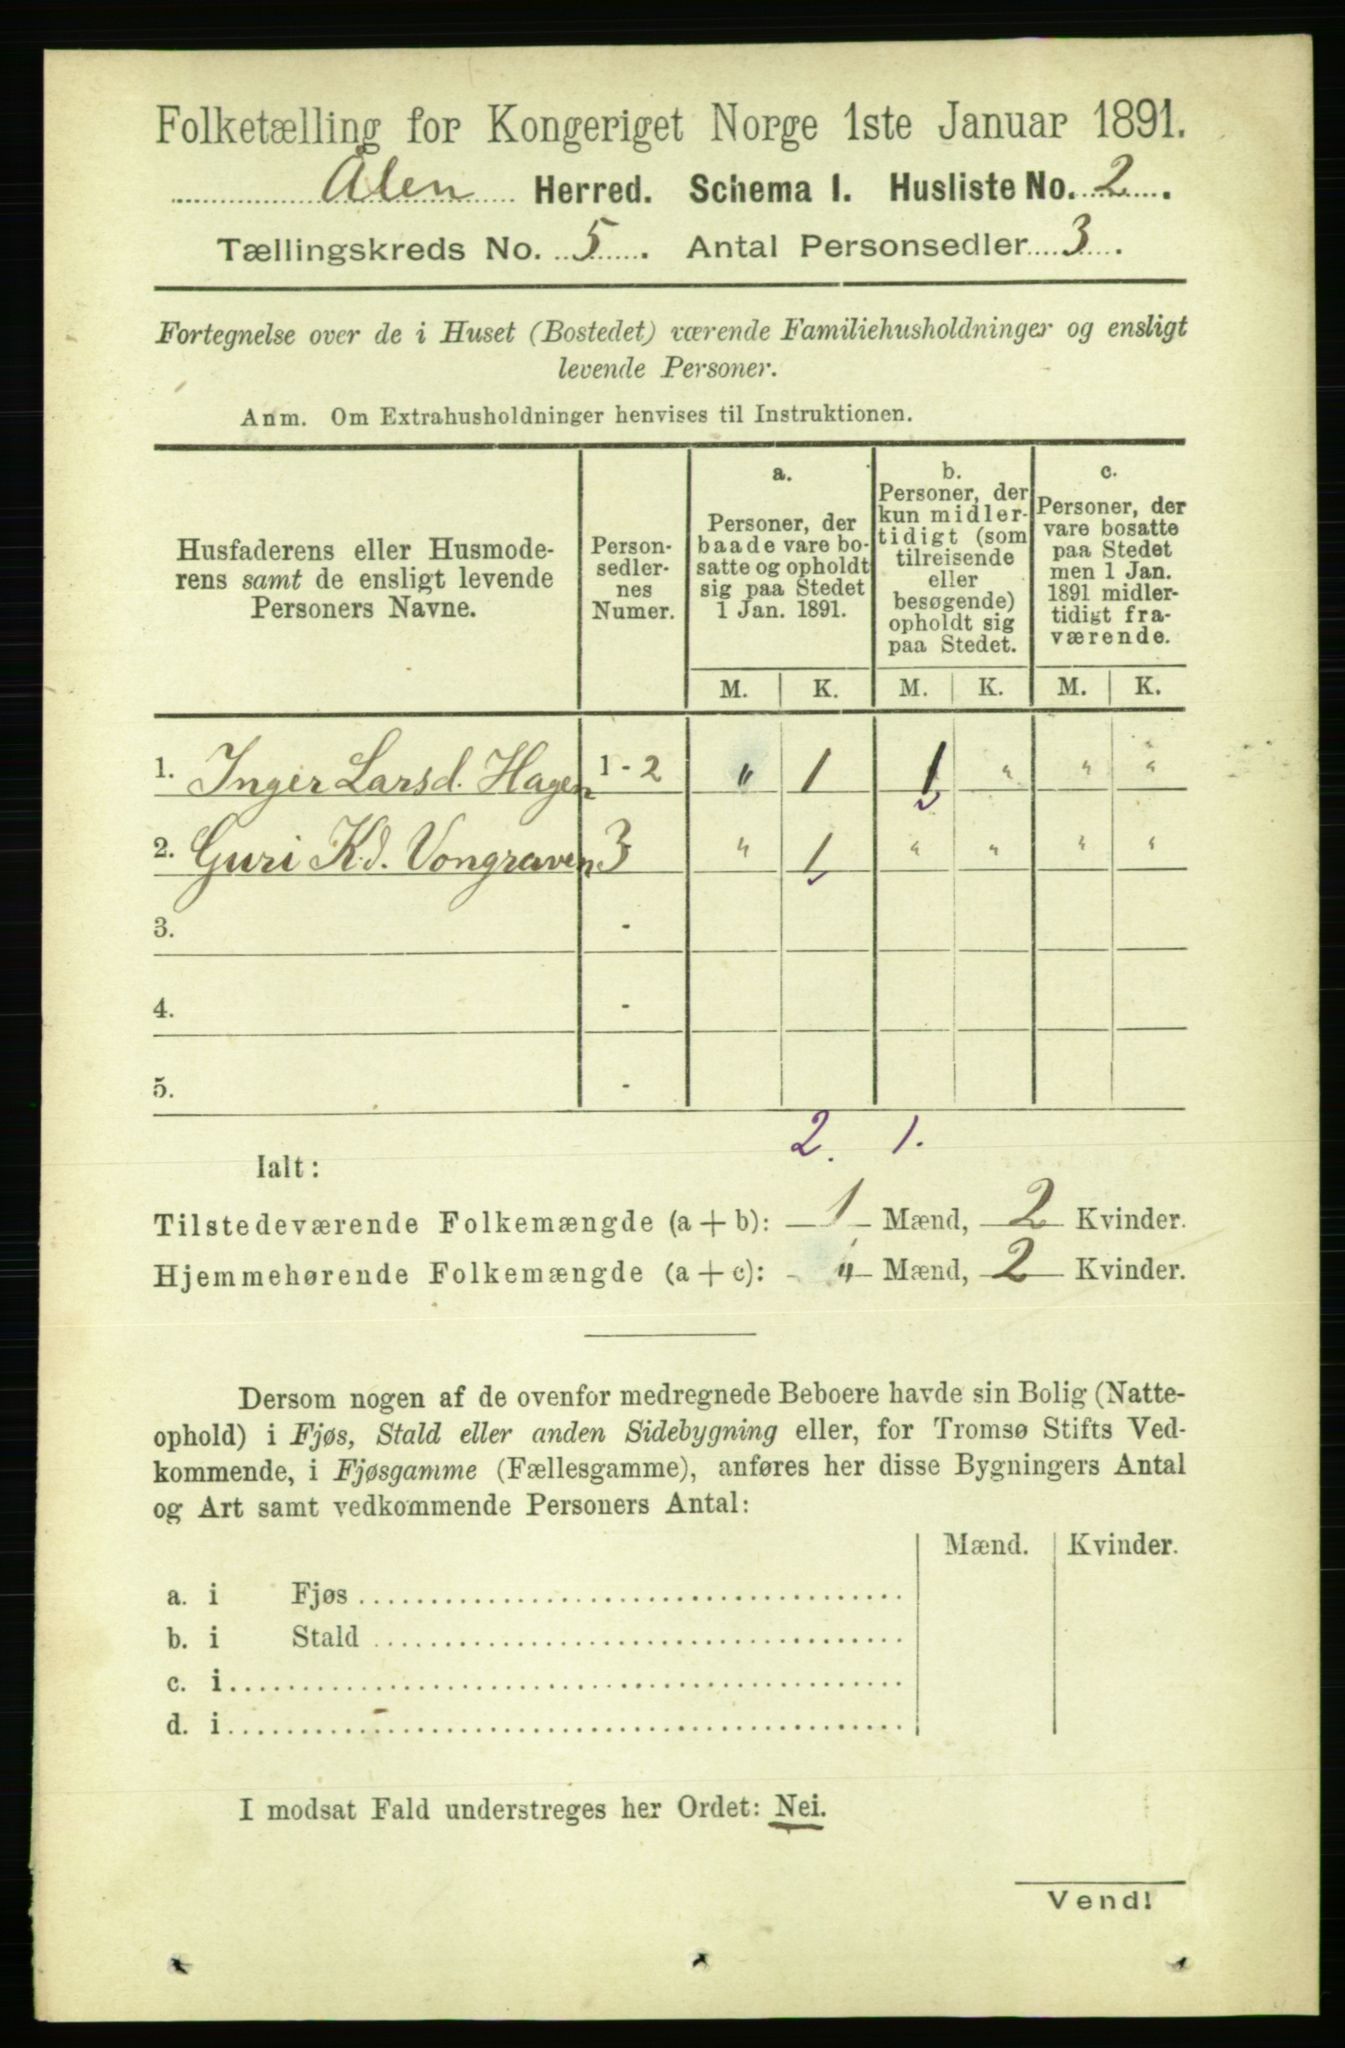 Folketælling for Kongeriget Norge 1ste Januar 1891.
Ålen Herred. Schema I. Husliste No. 2.
Tællingskreds No. 5. Antal Personsedler 3.
Fortegnelse over de i Huset (Bostedet) værende Familiehusholdninger og ensligt
levende Personer.
Anm. Om Extrahusholdninger henvises til Instruktionen.
Husfaderens eller Husmode-
rens samt de ensligt levende
Personers Navne.
Person-
sedler-
nes
Numer.
a.
Personer, der
baade vare bo-
satte og opholdt
sig paa Stedet
1 Jan. 1891.
b.
Personer, der
kun midler-
tidigt (som
tilreisende
eller
besøgende)
opholdt sig
paa Stedet.
c.
Personer, der
vare bosatte
paa Stedet
men 1 Jan.
1891 midler-
tidigt fra-
værende.
M. K. M. K. M. K.
1. Inger Larsd. Hagen 1-2 " 1 1 " " "
2. Guri K.d. Vongraven 3 " 1 " " " "
3. -
4. -
5. -
2. 1.
Ialt:
Tilstedeværende Folkemængde (a + b): 1 Mænd, 2 Kvinder.
Hjemmehørende Folkemængde (a + c): " Mænd, 2 Kvinder.
Dersom nogen af de ovenfor medregnede Beboere havde sin Bolig (Natte-
ophold) i Fjøs, Stald eller anden Sidebygning eller, for Tromsø Stifts Ved-
kommende, i Fjøsgamme (Fællesgamme), anføres her disse Bygningers Antal
og Art samt vedkommende Personers Antal:
Mænd. Kvinder.
a. i Fjøs
b. i Stald
c. i
d. i
I modsat Fald understreges her Ordet: Nei.
Vend!